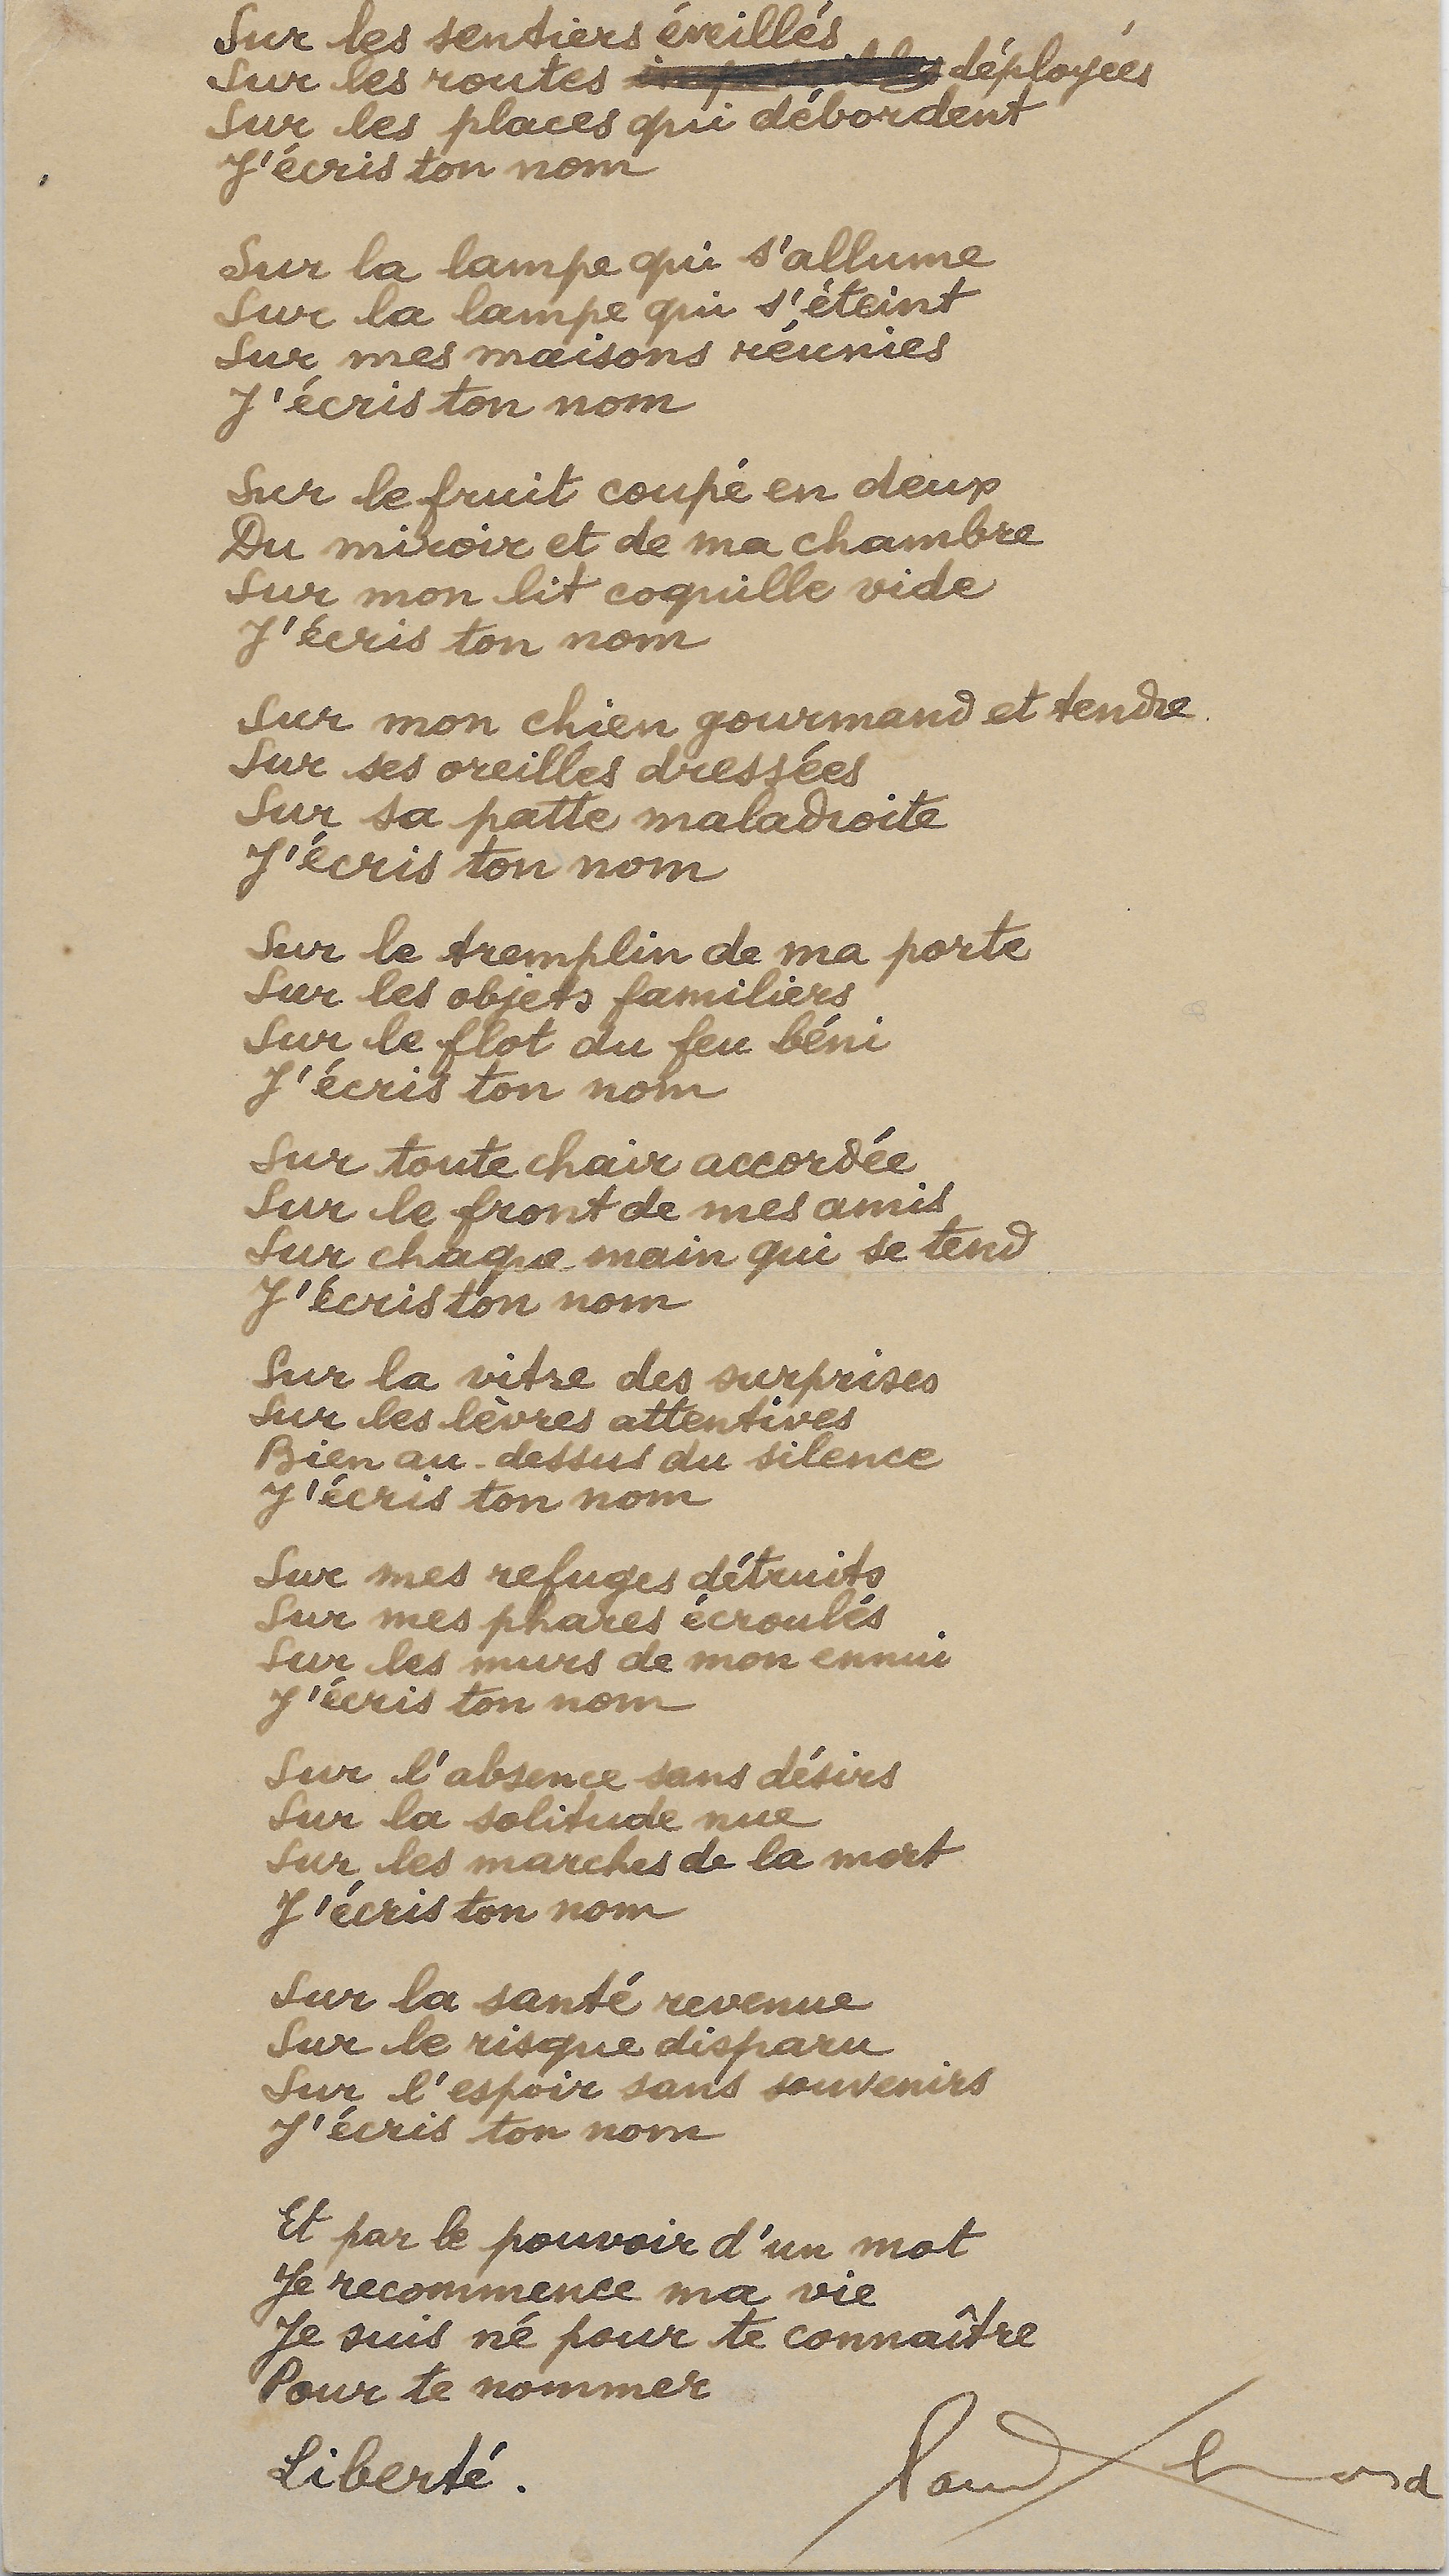 Sur les sentiers éveillés
Sur les routes déployées
Sur les places qui débordent
J'écris ton nom
Sur la lampe qui s'allume
Sur la lampe qui s'éteint
Sur mes maisons réunies
J'écris ton nom
Sur le fruit coupé en deux
Du miroir et de ma chambre
Sur mon lit coquille vide
J'écris ton nom
Sur mon chien gourmand et tendre
Sur ses oreilles dressées
Sur sa patte maladroite
J'écris ton nom
Sur le tremplin de ma porte
Sur les objets familiers
Sur le flot du feu béni
J'écris ton nom
Sur toute chair accordée
Sur le front de mes amis
Sur chaque main qui se tend
J'écris ton nom
Sur la vitre des surprises
Sur les lèvres attentives
Bien au-dessus du silence
J'écris ton nom
Sur mes refuges détruits
Sur mes phares écroulés
Sur les murs de mon ennui
J'écris ton nom
Sur l'absence sans désirs
Sur la solitude nue
Sur les marches de la mort
J'écris ton nom
Sur la santé revenue
Sur le risque disparu
Sur l'espoir sans souvenirs
J'écris ton nom
Et par le pouvoir d'un mot
Je recommence ma vie
Je suis né pour te connaître
Pour te nommer
Liberté.
Paul Eluard